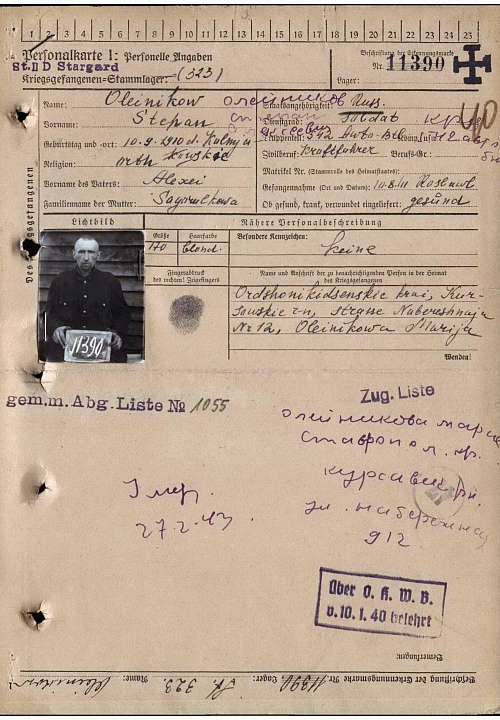 1 2 3 4 5 6 7 8 9 10 11 12 13 14 15 16 17 18 19 20 21 22 23 24 25
Personalkarte I: Personelle Angaben
St. II D Stargard
Kriegsgefangenen-Stammlager: (323)
Beschriftung der Erkennungsmarke
Nr. 11390
Lager:
Des Kriegsgefangenen
Name: Oleinikow Олейников
Staatsangehörigkeit: Russ.
Vorname: Stepan Степан
Dienstgrad: Soldat кр.
40
Алексеевич
Truppenteil: 342 Auto-Btl.
Geburtstag und -ort: 10.9.1910
Zivilberuf: Kraftfahrer Berufs-Gr.:
Religion: orth
Matrikel Nr. (Stammrolle des Heimatstaates)
Vorname des Vaters: Alexei
Gefangennahme (Ort und Datum): Roslawl
Familienname der Mutter:
Ob gesund, krank, verwundet eingeliefert: gesund
Lichtbild
Nähere Personalbeschreibung
Größe Haarfarbe Besondere Kennzeichen:
170 blond. keine
11390
Fingerabdruck
des rechten! Zeigefingers
Name und Anschrift der zu benachrichtigenden Person in der Heimat
des Kriegsgefangenen
Ordshonikidsenskie krai, Kur-
sawskie strasse Nabereshnaja
No 12, Oleinikowa Marija
Wenden!
gem. m. Abg. Liste № 1055
Zug. Liste
Олейникова Мария
Ставропол. кр.
Курсавский
ул. Набережная
Умер.
27.2.43.
912
Über O. K. W. B.
v. 10. 1. 40 belehrt
Bemerkungen:
Beschriftung der Erkennungsmarke Nr. 11390 Lager: 323 Name: Oleinikow